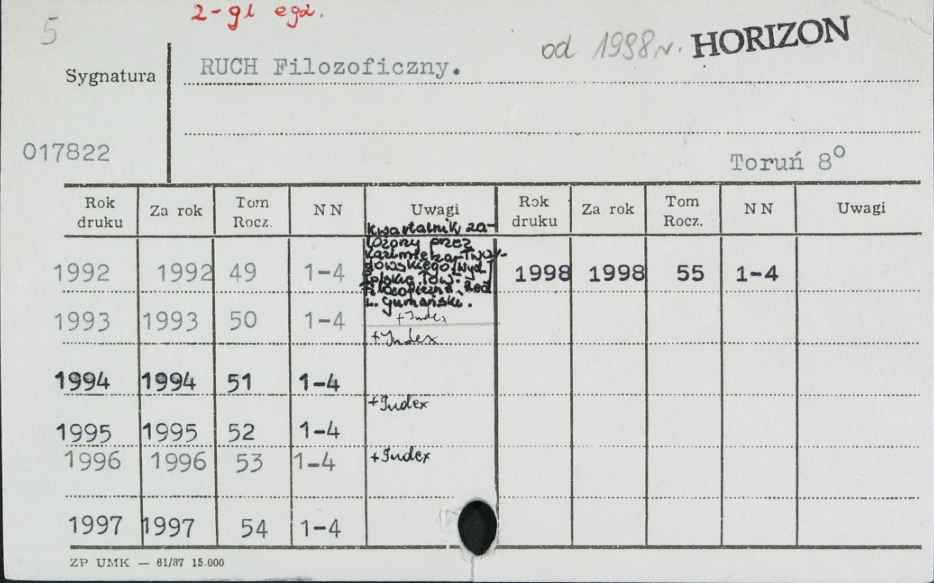 5
2-gi egz.
od 1998 r. HORIZON
Sygnatura
RUCH Filozoficzny.
017822
Toruń 8°
Rok druku Za rok Tom Rocz. NN Uwagi Rok druku Za rok Tom Rocz. NN Uwagi
kwartalnik za-
łożony przez
Kazimierza Twar-
dowskiego. Wyd.
Polskie Tow.
Filozoficzne. Red.
L. Gumański.
1992 1992 49 1-4 1998 1998 55 1-4
+Index
1993 1993 50 1-4
+Index
1994 1994 51 1-4
+Index
1995 1995 52 1-4
1996 1996 53 1-4 +Index
1997 1997 54 1-4
ZP UMK — 61/87 15.000